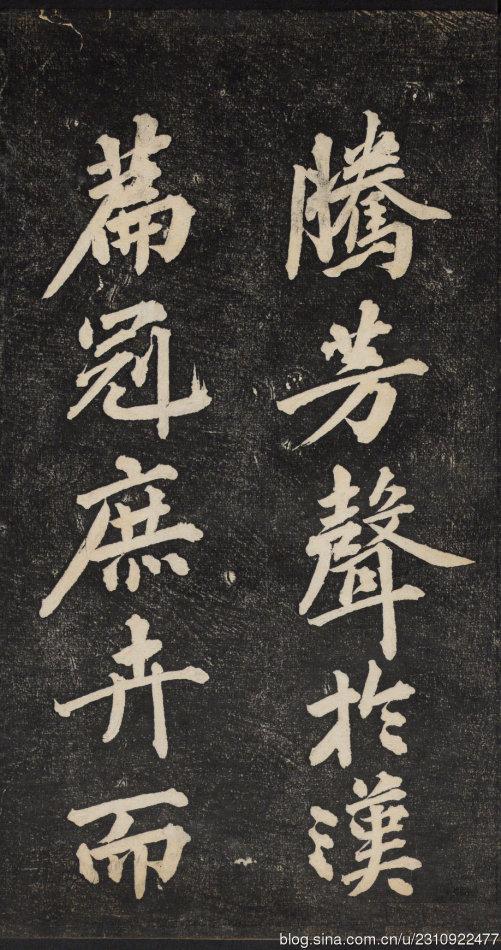 騰芳聲於漢
篇冠庶卉而
blog.sina.com.cn/u/2310922477